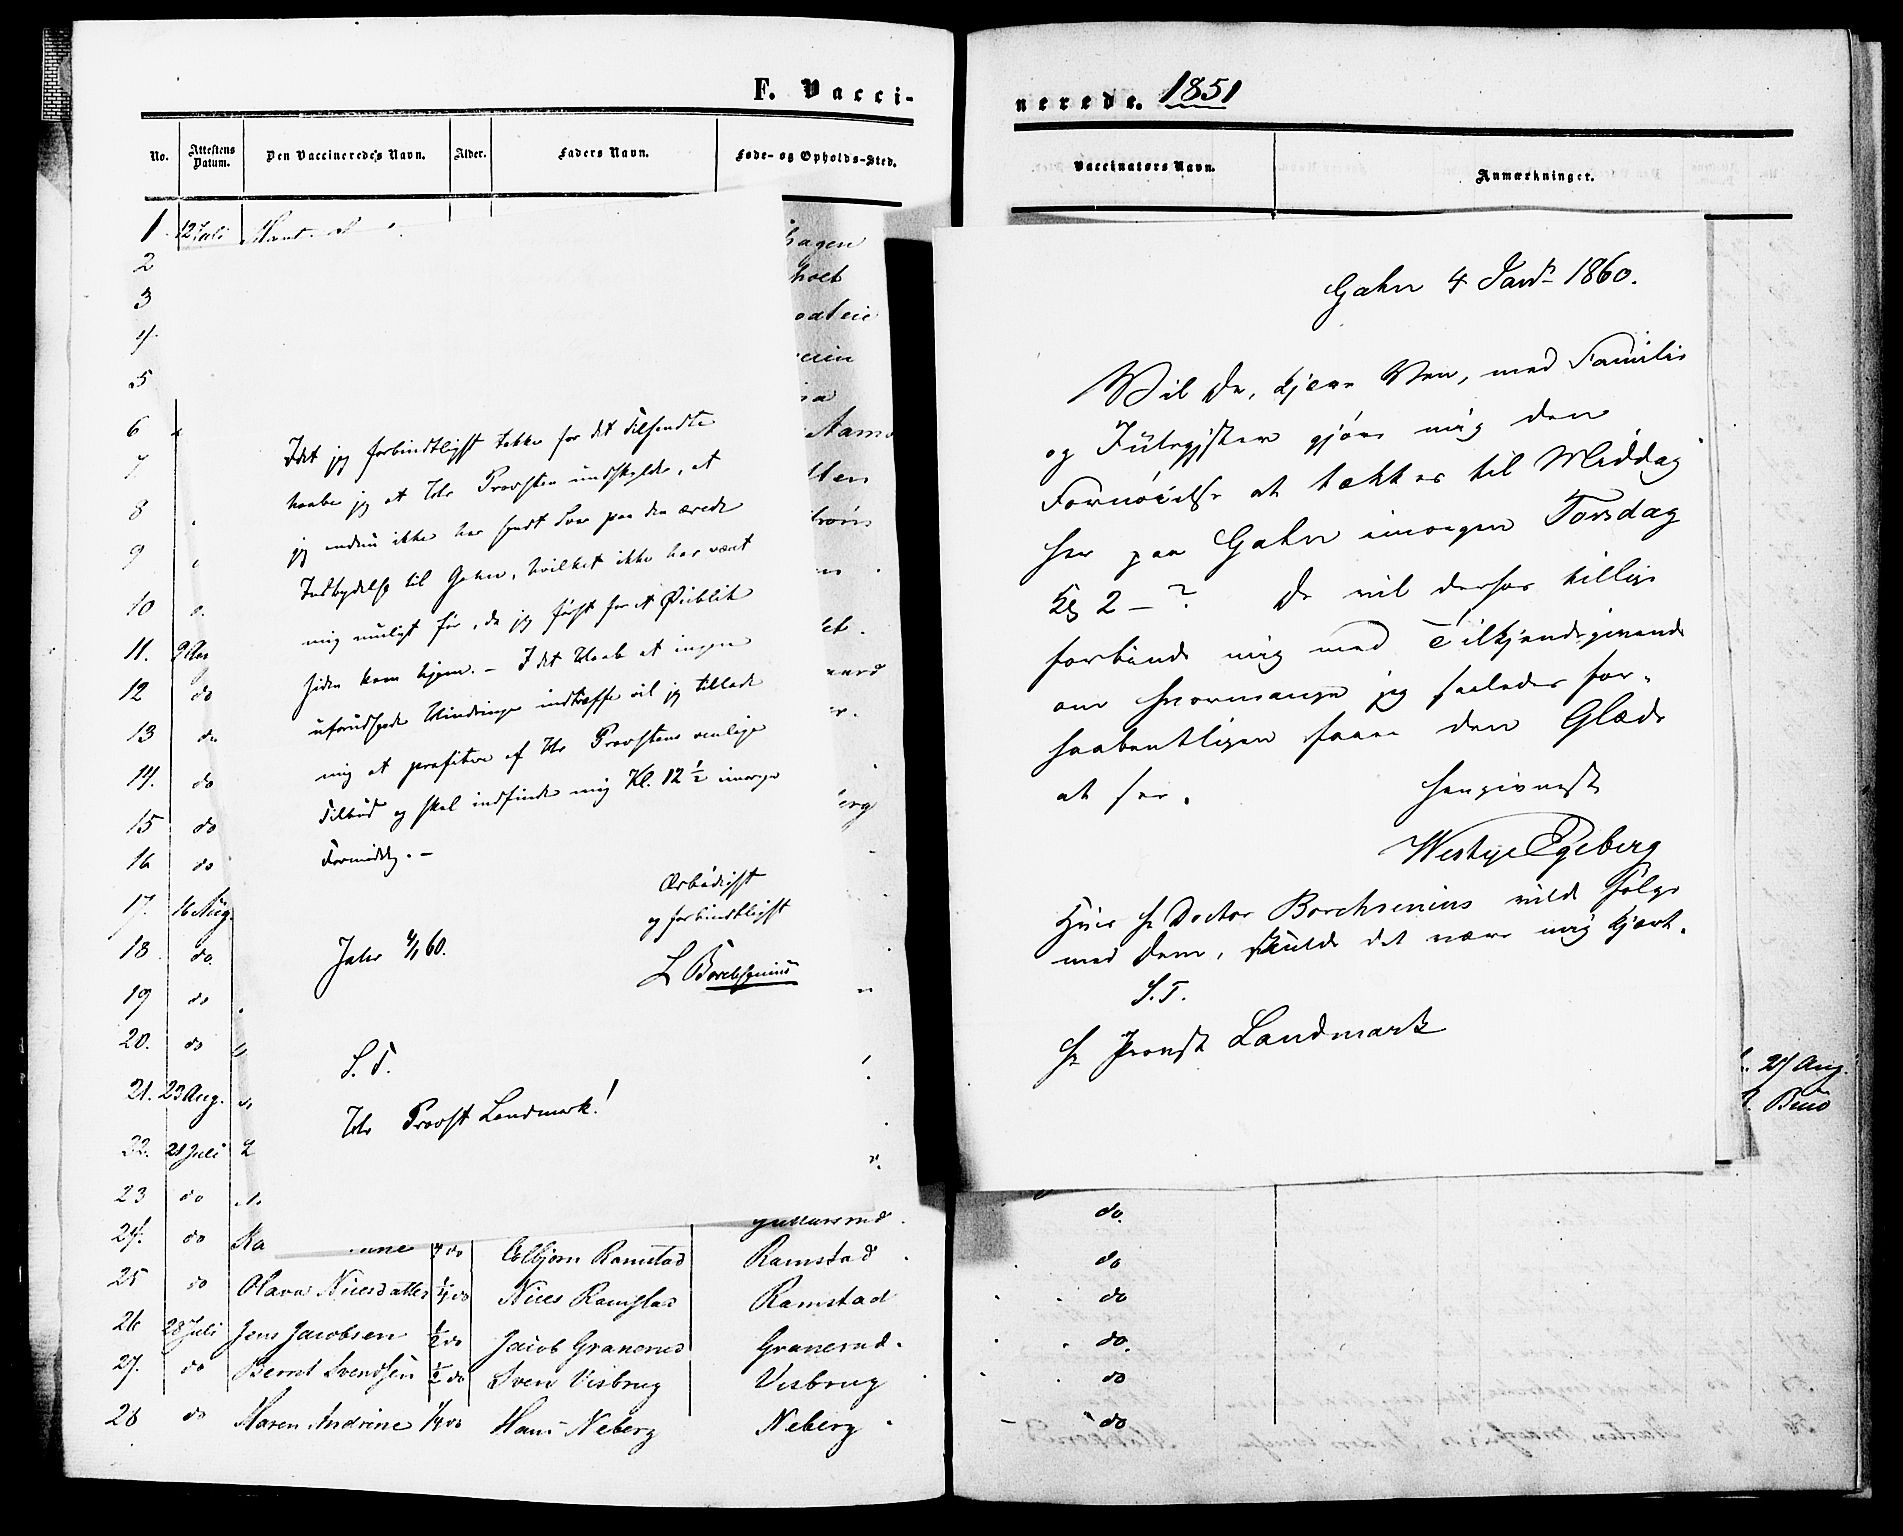 F. Vacci-
No.
Attestens Datum.
Den Vaccineredes Navn.
Alder.
Faders Navn.
Føde- og Opholds-Sted.
1 12 Juli
2
3
4
5
6
7
8
9
10
11.
12 do
13 do
14. do
15 do
16 do
17. 16 Aug.
18 do.
19 do
20. do
21. 23 Aug.
22. 21 Juli
23 do
24. do
25 do Olava Nielsdatter ¼ do Niels Ramstad Ramstad
26 28 Juli Jens Jacobsen ½ do Jacob Granerud Granerud.
27. do Bernt Svendsen ½ do Sven Visbrug Visbrug
28 do Maren Andrine ¼ do Hans Neberg Neberg
Colbjørn Ramstad Ramstad
Idet jeg forbindtligst takker for det Tilsendte
haaber jeg at Hr Provsten undskylder, at
jeg endnu ikke har sendt Svar paa den ærede
Indbydelse til Gahn, hvilket ikke har været
mig muligt før, da jeg først for et Øieblik
siden kom hjem. – I det Haab at ingen
uforudseede Hindringer indtræffe vil jeg tillade
mig at profitere af Hr Provstens venlige
Tilbud og skal indfinde mig Kl. 12 ½ imorgen
Formiddag. –
Ærbødigst
og forbindtligst
4/1 60.
L Borchsenius
S. T.
Hr Provst Landmark!
nerede. 1851
Vaccinators Navn.
Anmærkninger.
Gahn 4 Janr 1860.
Vil De, kjære Ven, med Familie
og Julegjester gjøre mig den
Fornøielse at tække er til Middag
her paa Gahn imorgen Torsdag
Kl 2 – ? De vil derfor tillige
forbinde mig med Tilkjendegivende
om hvormange jeg saaledes for-
haabentligen faaer den Glæde
at see.
Hengivnest
Westye Egeberg
Hvis Hr Doctor Borchsenius vilde følge
med Dem, skulde det være mig kjært.
S. T.
Hr Provst Landmark
24 Aug.
do.
do
do
do.
do
do